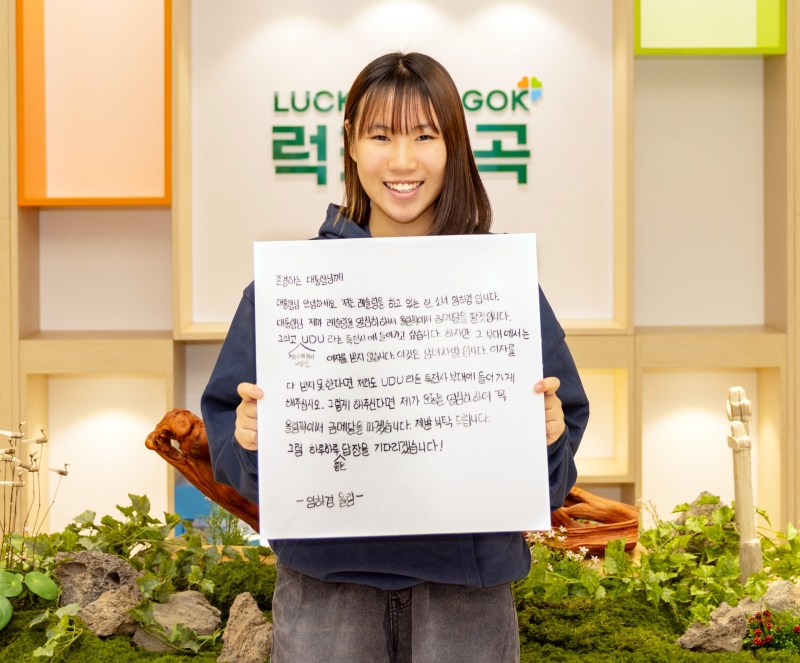 LUCK GOK
럭 곡
존경하는 대통령님께
대통령님 안녕하세요. 저는 레슬링을 하고 있는 한 소녀 엄하경 입니다.
대통령님 제가 레슬링을 열심히 해서 올림픽에서 금메달을 딸것입니다.
그리고 UDU 라는 특전사에 들어가고 싶습니다. 하지만 그 부대에서는
여자를 받지 않습니다. 이것은 남녀차별 입니다. 여자를
다 받지 못한다면 저라도 UDU 라는 특전사 부대에 들어가게
해주십시오. 그렇게 해주신다면 제가 운동을 열심히 하여 꼭
올림픽에서 금메달을 따겠습니다. 제발 부탁 드립니다.
그럼 하루하루 답장을 기다리겠습니다!
-엄하경 올림-